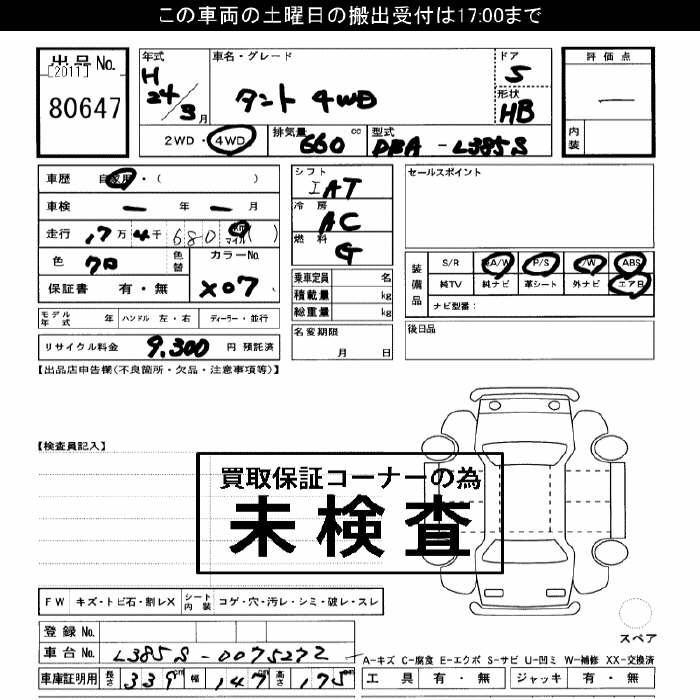 この車両の土曜日の搬出受付は17:00まで
出品 No.
[2011]
80647
年式
H
24/3月
車名・グレード
タント 4WD
ドア
5
形状
HB
評価点
—
内装
2WD・4WD
排気量
660 cc
型式
DBA - L385S
車歴 自家用・( )
車検 — 年 — 月
走行 17万4千680 マイル( )
色 クロ
色替
カラーNo.
X07
保証書 有・無
モデル年式 年 ハンドル 左・右 ディーラー・並行
リサイクル料金 9,300 円 預託済
シフト
IAT
冷房
AC
燃料
G
乗車定員 名
積載量 kg
総重量 kg
名変期限
月 日
セールスポイント
装備品
S/R A/W P/S P/W ABS
純TV 純ナビ 革シート 外ナビ エアB
ナビ型番:
後日品
【出品店申告欄(不良箇所・欠品・注意事項等)】
【検査員記入】
買取保証コーナーの為
未検査
FW キズ・トビ石・割レX シート内装 コゲ・穴・汚レ・シミ・破レ・スレ
スペア
登録 No.
車台 No. L385S-0075272
A-キズ C-腐食 E-エクボ S-サビ U-凹ミ W-補修 XX-交換済
車庫証明用 長さ 339cm 幅 147cm 高さ 175cm
工具 有・無 ジャッキ 有・無